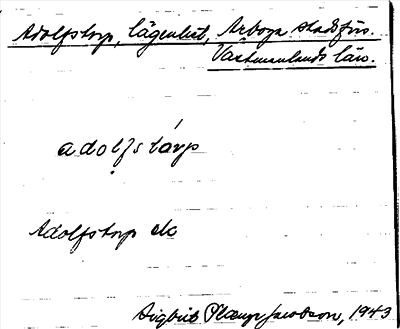 Adolfstorp, lägenhet, Arboga stadsförs.
Västmanlands län.
adolfstårp
Adolfstorp ek
Sigbrit Plænge Jacobson, 1943